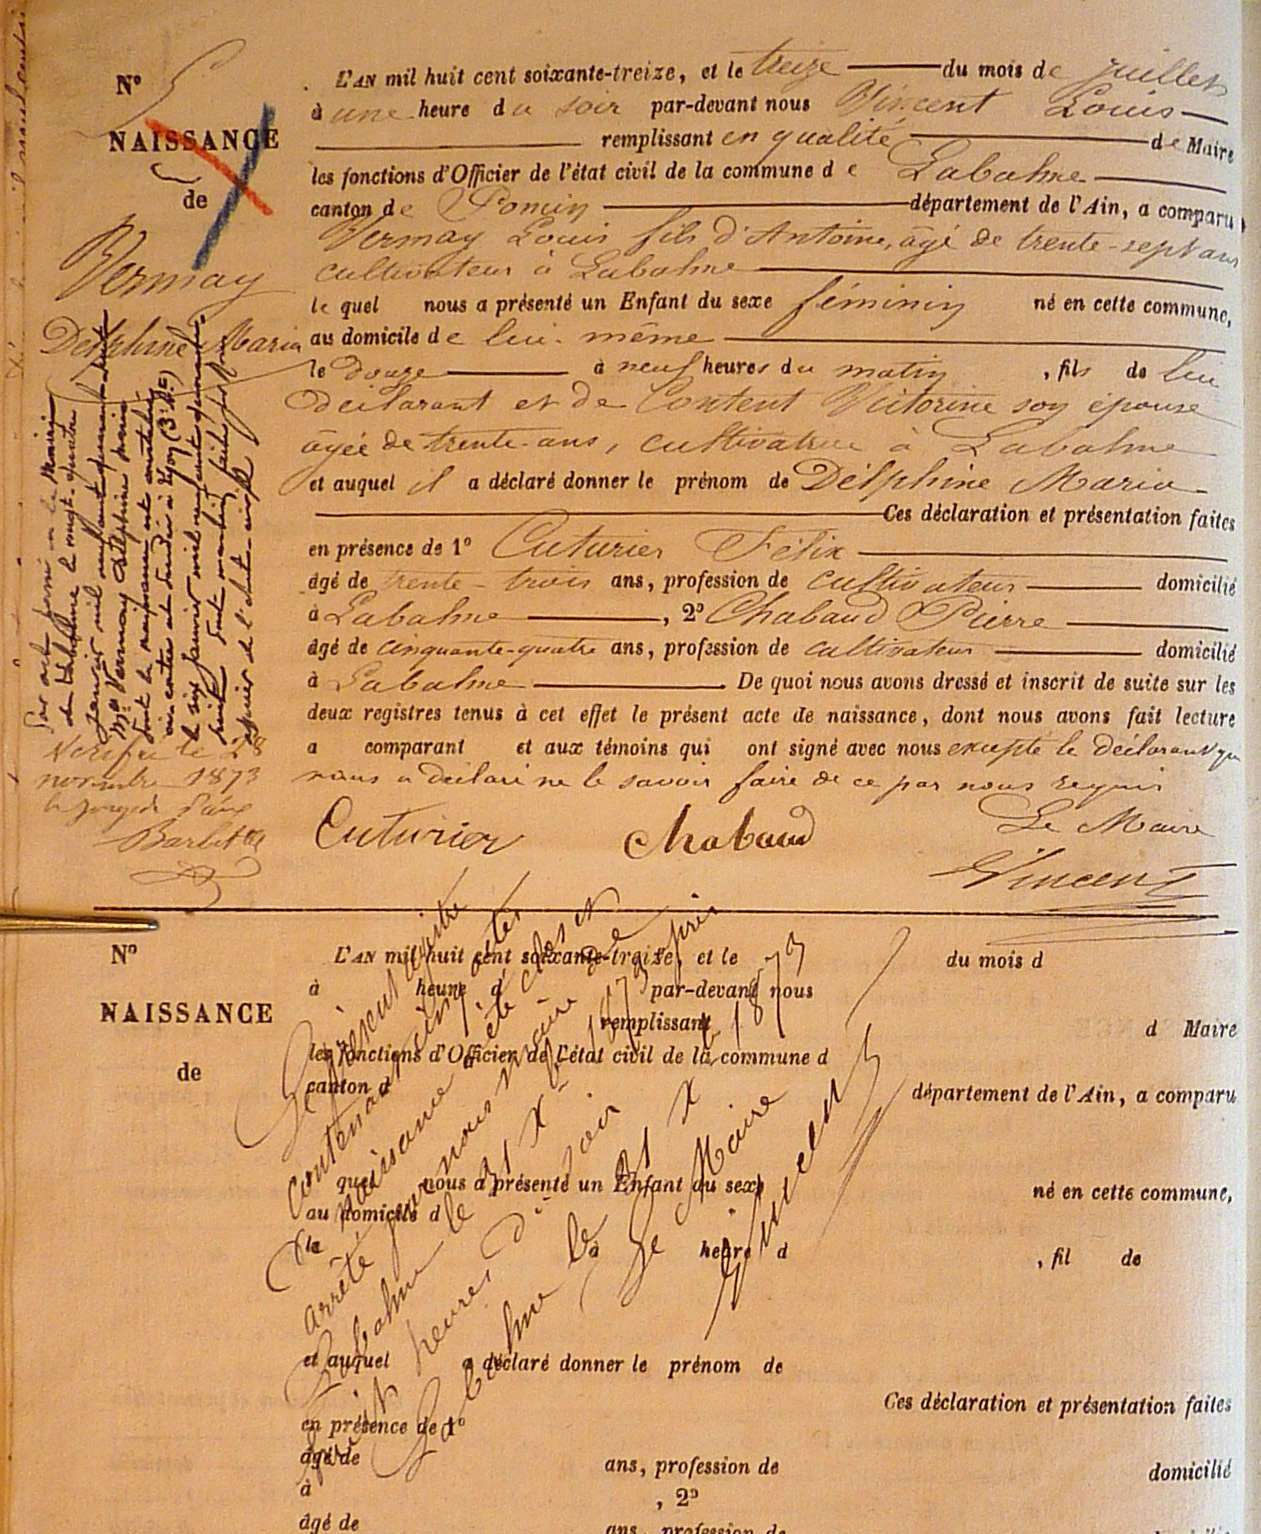 N° 5
NAISSANCE
de
Vermay
Delphine Maria
L'AN mil huit cent soixante-treize, et le treize du mois de juillet
à une heure du soir par-devant nous Vincent Louis
remplissant en qualité de Maire
les fonctions d'Officier de l'état civil de la commune de Labalme
canton de Poncin département de l'Ain, a comparu
Vermay Louis fils d'Antoine, âgé de trente-sept ans
cultivateur à Labalme
le quel nous a présenté un Enfant du sexe féminin né en cette commune,
au domicile de lui-même
le douze à neuf heures du matin, fils de lui
déclarant et de Content Victorine son épouse
âgée de trente ans, cultivatrice à Labalme
et auquel il a déclaré donner le prénom de Delphine Maria
Ces déclaration et présentation faites
en présence de 1° Cuturier Félix
âgé de trente-trois ans, profession de cultivateur domicilié
à Labalme, 2° Chabaud Pierre
âgé de cinquante-quatre ans, profession de cultivateur domicilié
à Labalme. De quoi nous avons dressé et inscrit de suite sur les
deux registres tenus à cet effet le présent acte de naissance, dont nous avons fait lecture
a comparant et aux témoins qui ont signé avec nous excepté le déclarant qui
nous a déclaré ne le savoir faire de ce par nous requis
Cuturier Chabaud Le Maire
Vincent
Par acte passé à la Mairie
janvier mil neuf cent
Vermay Delphine Maria
dont la naissance est
à Lyon (3e)
le six janvier mil neuf cent
Vérifié le 28
novembre 1873
le juge de Paix
N°
NAISSANCE
de
L'AN mil huit cent soixante-treize, et le du mois d
à heure d par-devant nous
remplissant d Maire
les fonctions d'Officier de l'état civil de la commune d
canton d département de l'Ain, a comparu
quel nous a présenté un Enfant du sexe né en cette commune,
au domicile d
le à heure d , fil de
et auquel a déclaré donner le prénom de
Ces déclaration et présentation faites
en présence de 1°
âgé de ans, profession de domicilié
à , 2°
âgé de ans, profession de domicilié
Le présent registre
contenant cinq actes
de naissance a été clos et
arrêté par nous maire de
Labalme le 31 Xbre 1873 à
huit heures du soir
Labalme le 31 Xbre 1873
Le Maire
Vincent